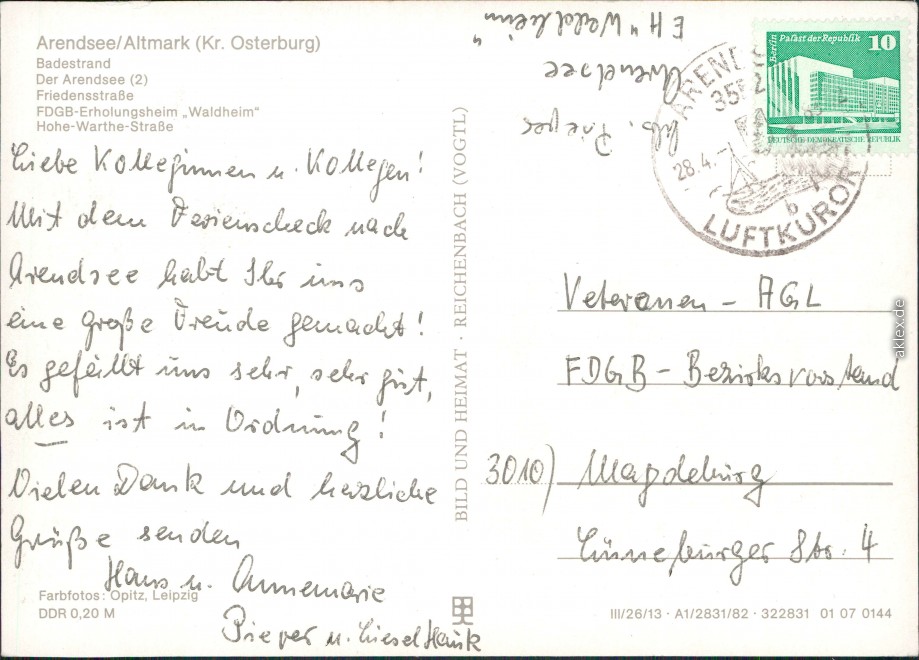 Arendsee/Altmark (Kr. Osterburg)
Badestrand
Der Arendsee (2)
Friedensstraße
FDGB-Erholungsheim „Waldheim"
Hohe-Warthe-Straße
Liebe Kolleginnen u. Kollegen!
Mit dem Ferienscheck nach
Arendsee habt Ihr uns
eine große Freude gemacht!
Es gefällt uns sehr, sehr gut,
alles ist in Ordnung!
Vielen Dank und herzliche
Grüße senden
Hans u. Annemarie
Pieper u. Liesel Hauk
Farbfotos: Opitz, Leipzig
DDR 0,20 M
BILD UND HEIMAT · REICHENBACH (VOGTL)
Abs. Pieper
Arendsee
EH "Waldheim"
Berlin Palast der Republik 10
DEUTSCHE DEMOKRATISCHE REPUBLIK
ARENDSEE
28.4.
b
LUFTKURORT
Veteranen - AGL
FDGB - Bezirksvorstand
3010) Magdeburg
Lüneburger Str. 4
III/26/13 · A1/2831/82 · 322831 01 07 0144
aklex.de